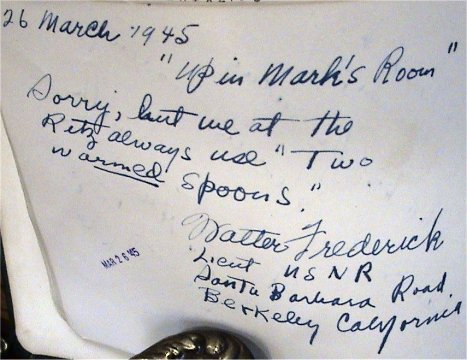 26 March 1945
"Up in Mark's Room"
Sorry, but we at the
Ritz always use "Two
warmed spoons."
Walter Frederick
Lieut USNR
Santa Barbara Road
Berkeley California
MAR 26 45